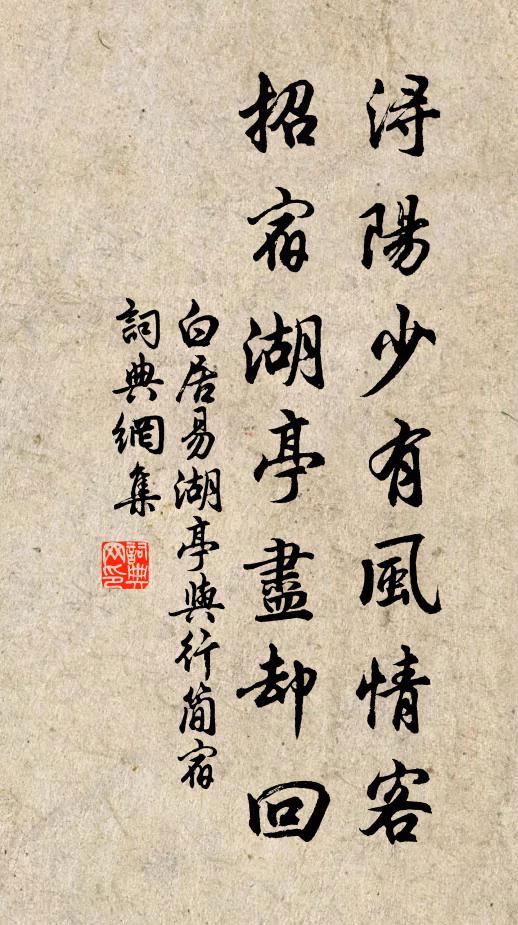 潯陽少有風情客
招宿湖亭盡却回
白居易湖亭與行簡宿
詞典網集
詞典網印